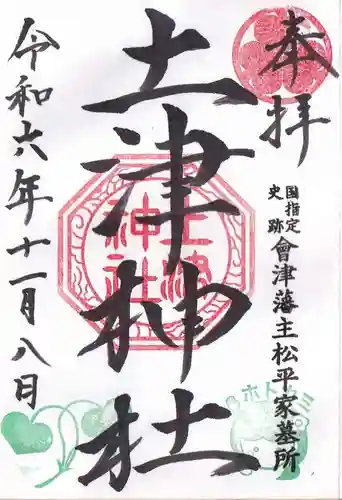 奉拝
国指定
史跡
會津藩主松平家墓所
土津神社
土津
神社
令和六年十一月八日
ホトミ